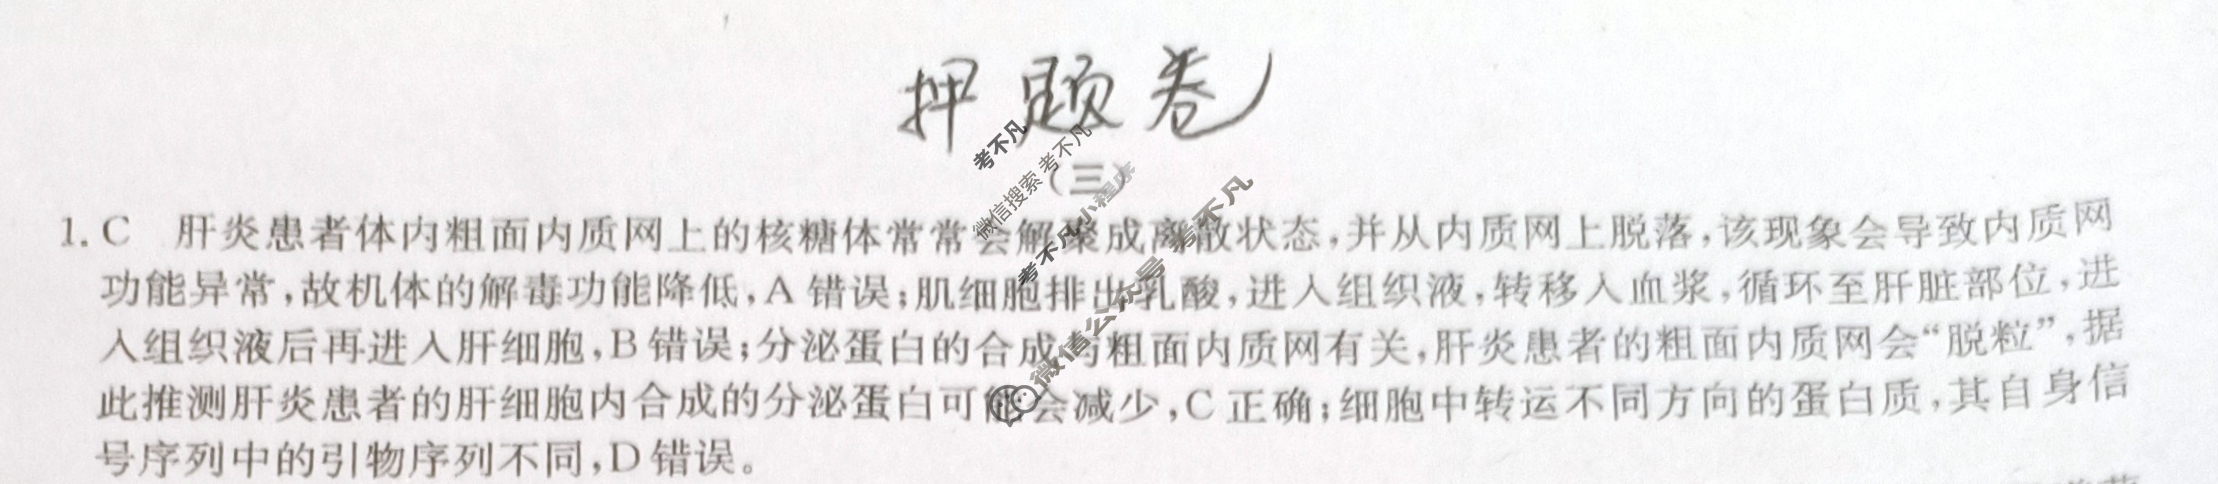 押题卷
（三）
1. C　肝炎患者体内粗面内质网上的核糖体常常会解聚成离散状态，并从内质网上脱落，该现象会导致内质网
功能异常，故机体的解毒功能降低，A 错误；肌细胞排出乳酸，进入组织液，转移入血浆，循环至肝脏部位，进
入组织液后再进入肝细胞，B 错误；分泌蛋白的合成与粗面内质网有关，肝炎患者的粗面内质网会“脱粒”，据
此推测肝炎患者的肝细胞内合成的分泌蛋白可能会减少，C 正确；细胞中转运不同方向的蛋白质，其自身信
号序列中的引物序列不同，D 错误。
考不凡
微信搜索 考不凡
考不凡小程序
微信公众号 考不凡